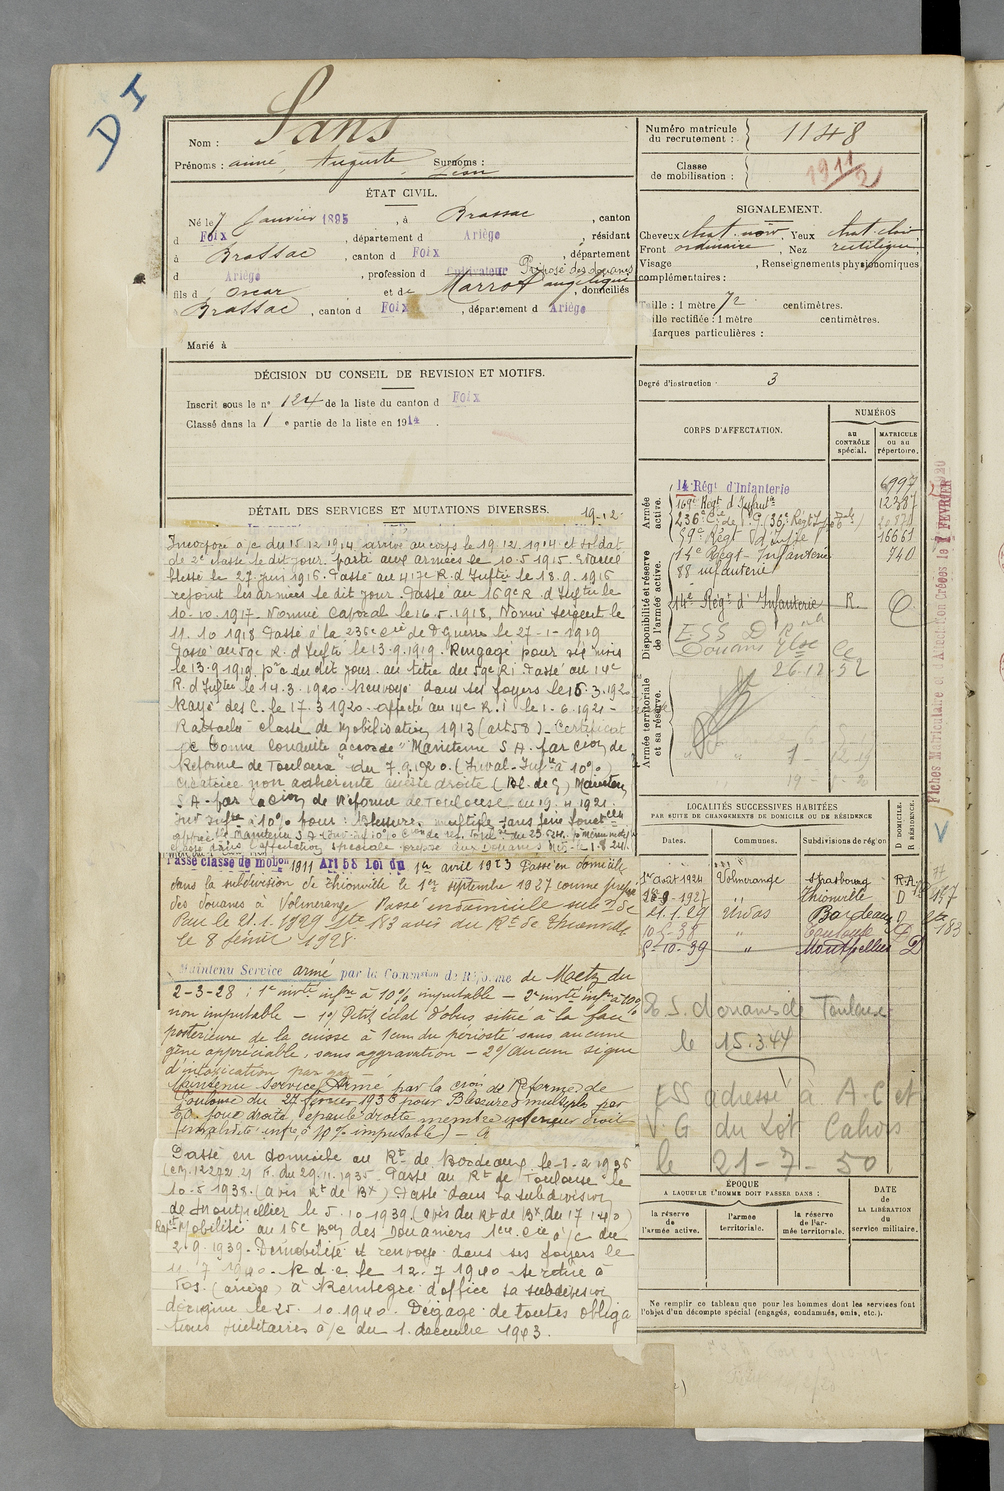 DI
Nom : Sans
Prénoms : aimé, Auguste, Surnoms : Léon
ÉTAT CIVIL.
Né le 7 Janvier 1895, à Brassac, canton
d Foix, département d Ariège, résidant
à Brassac, canton d Foix, département
d Ariège, profession d Cultivateur Préposé des douanes
fils d Oscar et de Marrot angélique, domiciliés
à Brassac, canton d Foix, département d Ariège
Marié à
DÉCISION DU CONSEIL DE REVISION ET MOTIFS.
Inscrit sous le n° 124 de la liste du canton d Foix
Classé dans la 1 e partie de la liste en 1914.
DÉTAIL DES SERVICES ET MUTATIONS DIVERSES. 19-12
Incorporé à/c du 15.12.1914 arrivé au corps le 19.12.1914 et soldat
de 2e classe le dit jour. Parti aux armées le 10.5.1915. Evacué
blessé le 27 juin 1916. Passé au 417e R. d'Inftie le 18.9.1916
rejoint les armées le dit jour. Passé au 169e R. d'Inftie le
10.10.1917. Nommé Caporal le 16.5.1918. Nommé Sergent le
11.10.1918 Passé à la 236e Cie de P. Guerre le 27-1-1919
Passé au 59e R. d'Inftie le 13.9.1919. Rengagé pour six mois
le 13.9.1919 pr c. du dit jour au titre du 59e RI. Passé au 14e
R. d'Inftie le 14.3.1920. Renvoyé dans ses foyers le 15.3.1920
Rayé des C. le 17.3.1920. affecté au 14e R.I. le 1.6.1921.
Rattaché classe de Mobilisation 1913 (art 58). Certificat
de bonne conduite accordé "Maintenu S.A. par Cion de
Réforme de Toulouse" du 7.9.1920. (Inval. Infre à 10%)
cicatrice non adhérente cuisse droite (Bl. de G) Maintenu
S.A. par la Cion de Réforme de Toulouse du 19.4.1921.
Invté Infre à 10% pour : Blessures multiples sans gêne fonctelle
Passé classe de mobon 1911 Art 58 Loi du 1er avril 1923 Passé en domicile
dans la subdivision de Thionville le 1er septembre 1927 comme préposé
des douanes à Volmerange. Passé en domicile sub on de
Pau le 21.1.1929 Lte 183 avis du Rt de Thionville
le 8 février 1928.
Maintenu Service armé par la Commission de Réforme de Metz du
2-3-28 : 1° invté infre à 10% imputable — 2° invté infre à 10%
non imputable — 1°/ Petit éclat d'obus situé à la face
postérieure de la cuisse à 1cm du périoste sans aucune
gêne appréciable, sans aggravation — 2°/ Aucun signe
d'intoxication par gaz —
Maintenu Service Armé par la Cion de Réforme de
Toulouse du 27 février 1933 pour Blessures multiples par
E.O. joue droite, épaule droite membre inférieur droit
(invalidité infre à 10% imputable) —
Passé en domicile au Rt de Bordeaux le 1-2 1935
(em 12292.21 F. du 29.11.1935. Passé au Rt de Toulouse le
10.5.1938. (avis Rt de Bx) Passé dans la subdivision
de Montpellier le 5.10.1939 (avis du Rt de Bx du 17 1 40)
Rapt Mobilisé au 16e Bon des Douaniers 1ère Cie à/c du
2.9.1939. Démobilisé et renvoyé dans ses foyers le
11.7 1940. R.d.c. le 12.7 1940. Se retire à
Fos. (ariège) à Réintégré d'office sa subdivision
d'origine le 25.10.1940. Dégagé de toutes obliga
tions militaires à/c du 1. décembre 1943.
Numéro matricule du recrutement : 1148
Classe de mobilisation : 1911/2
SIGNALEMENT.
Cheveux chat. noir, Yeux chat. clair
Front ordinaire, Nez rectiligne
Visage, Renseignements physionomiques
complémentaires :
Taille : 1 mètre 72 centimètres.
Taille rectifiée : 1 mètre centimètres.
Marques particulières :
Degré d'instruction : 3
CORPS D'AFFECTATION.
NUMÉROS
AU CONTRÔLE spécial.
MATRICULE OU AU répertoire.
Armée active.
14 Régt d'Infanterie 6997
169e Regt d'Infanterie 12387
236e Cie de P.G (36e Regt
59e Régt d'Inftie 16661
14e Régt Infanterie 740
88 infanterie
Disponibilité et réserve de l'armée active.
14e Régt d'Infanterie R.
Douanes
26.12.52
Armée territoriale et sa réserve.
Fiches Matriculaire et d'Affectation Créées le 7 FÉVRIER 1920
LOCALITÉS SUCCESSIVES HABITÉES
PAR SUITE DE CHANGEMENTS DE DOMICILE OU DE RÉSIDENCE
Dates. Communes. Subdivisions de région D. DOMICILE. R. RÉSIDENCE.
1er Août 1924 Volmerange Strasbourg R.A.
1.9.1927 " Thionville D 197
21.1.29 Urdos Bordeaux D Lte 183
10-5-38 " Toulouse D
5-10-39 " Montpellier D
E.S. douanes de Toulouse
le 15.3.44
ESS adressé à A.C et
V.G du Lot Cahors
le 21-7-50
ÉPOQUE
A LAQUELLE L'HOMME DOIT PASSER DANS :
la réserve de l'armée active.
l'armée territoriale.
la réserve de l'armée territoriale.
DATE de LA LIBÉRATION du service militaire.
Ne remplir ce tableau que pour les hommes dont les services font
l'objet d'un décompte spécial (engagés, condamnés, omis, etc.).